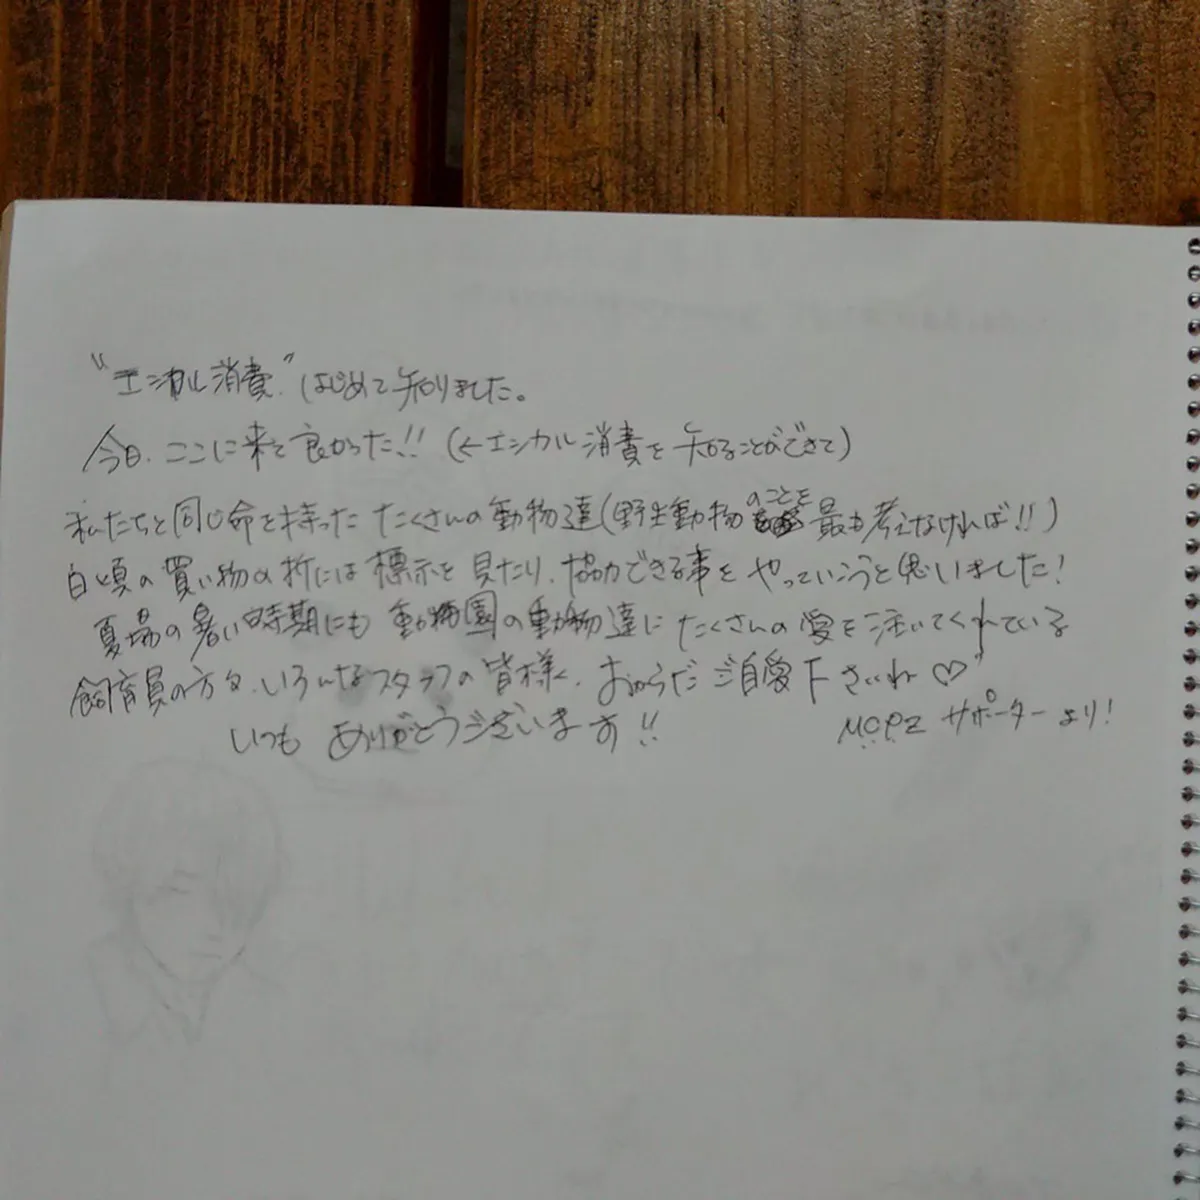 "エシカル消費"はじめて知りました。
今日、ここに来て良かった!!(←エシカル消費を知ることができて)
私たちと同じ命を持ったたくさんの動物達(野生動物のことを最も考えなければ!!)
日頃の買い物の折には標示を見たり、協力できる事をやっていこうと思いました!
夏場の暑い時期にも動物園の動物達にたくさんの愛を注いてくれている
飼育員の方々、いろんなスタッフの皆様、おからだご自愛下さいね♡
いつもありがとうございます!!
サポーターより!